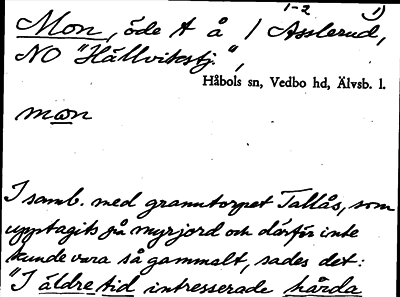 1-2 1)
Mon, öde t å / Asslerud,
NO "Hällvikstj.",
Håbols sn, Vedbo hd, Älvsb. l.
mon
I samb. med granntorpet Tallås, som
upptagits på myrjord och därför inte
kunde vara så gammalt, sades det:
"I äldre tid intresserade hårda